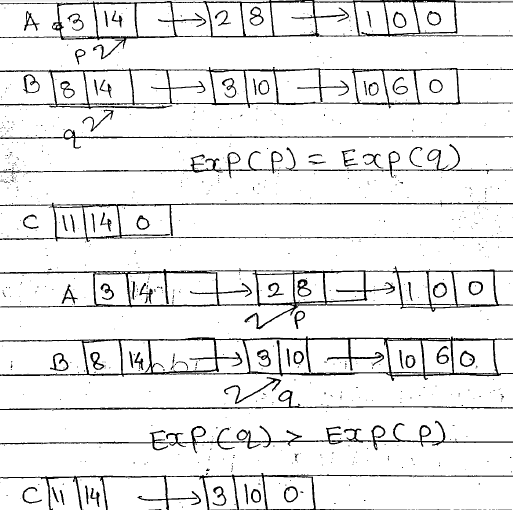 A 3 14 2 8 1 0 0
p
B 8 14 3 10 10 6 0
q
Exp(p) = Exp(q)
C 11 14 0
A 3 14 2 8 1 0 0
p
B 8 14 3 10 10 6 0
q
Exp(q) > Exp(p)
C 11 14 3 10 0